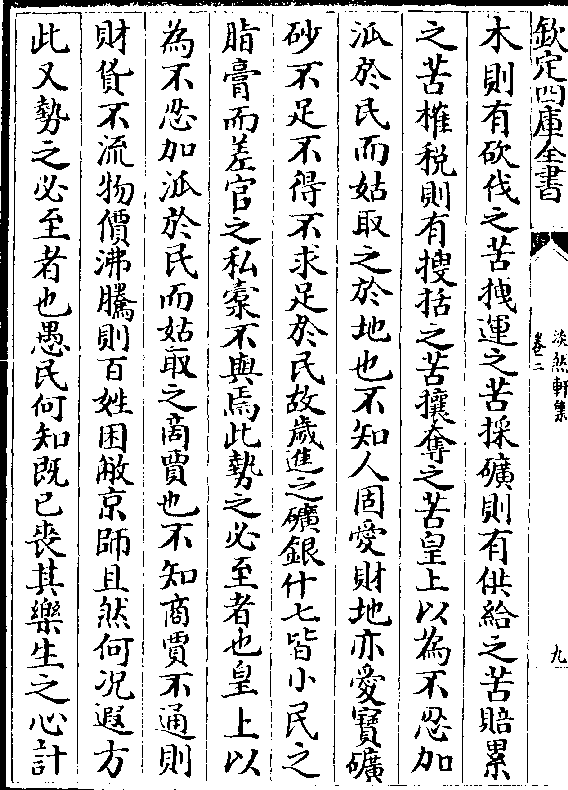 欽定四庫全書
淡然軒集
卷二
九
木則有砍伐之苦拽運之苦採礦則有供給之苦賠累
之苦榷稅則有搜括之苦攘奪之苦皇上以為不忍加
派於民而姑取之於地也不知人固愛財地亦愛寶礦
砂不足不得不求足於民故歲進之礦銀什七皆小民之
脂膏而差官之私槖不與焉此勢之必至者也皇上以
為不忍加派於民而姑取之商賈也不知商賈不通則
財貨不流物價沸騰則百姓困敝京師且然何况遐方
此又勢之必至者也愚民何知既已喪其樂生之心計